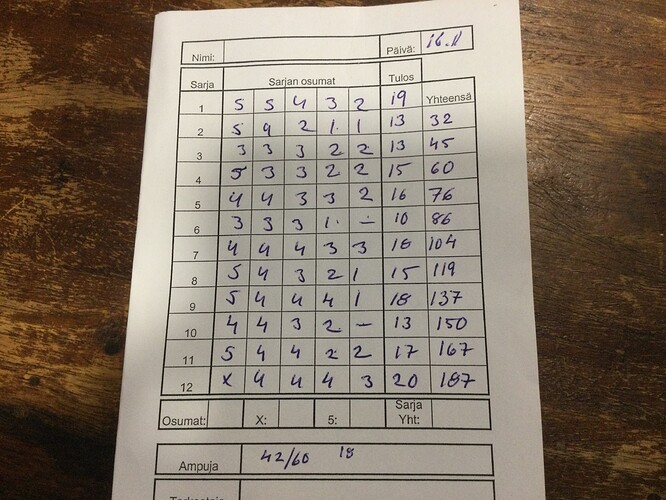 Nimi: Päivä: 16.11
Sarja Sarjan osumat Tulos
Yhteensä
1 5 5 4 3 2 19
2 5 4 2 1 1 13 32
3 3 3 3 2 2 13 45
4 5 3 3 2 2 15 60
5 4 4 3 3 2 16 76
6 3 3 3 1 – 10 86
7 4 4 4 3 3 18 104
8 5 4 3 2 1 15 119
9 5 4 4 4 1 18 137
10 4 4 3 2 – 13 150
11 5 4 4 2 2 17 167
12 X 4 4 4 3 20 187
Osumat: X: 5: Sarja Yht:
Ampuja 42/60 18